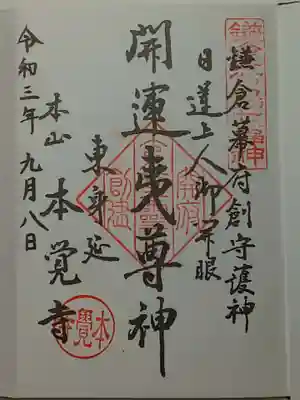 鎌倉幕府創守護神
日蓮上人御開眼
開運夷尊神
東身延
本山 本覺寺
令和三年 九月八日
本覺寺